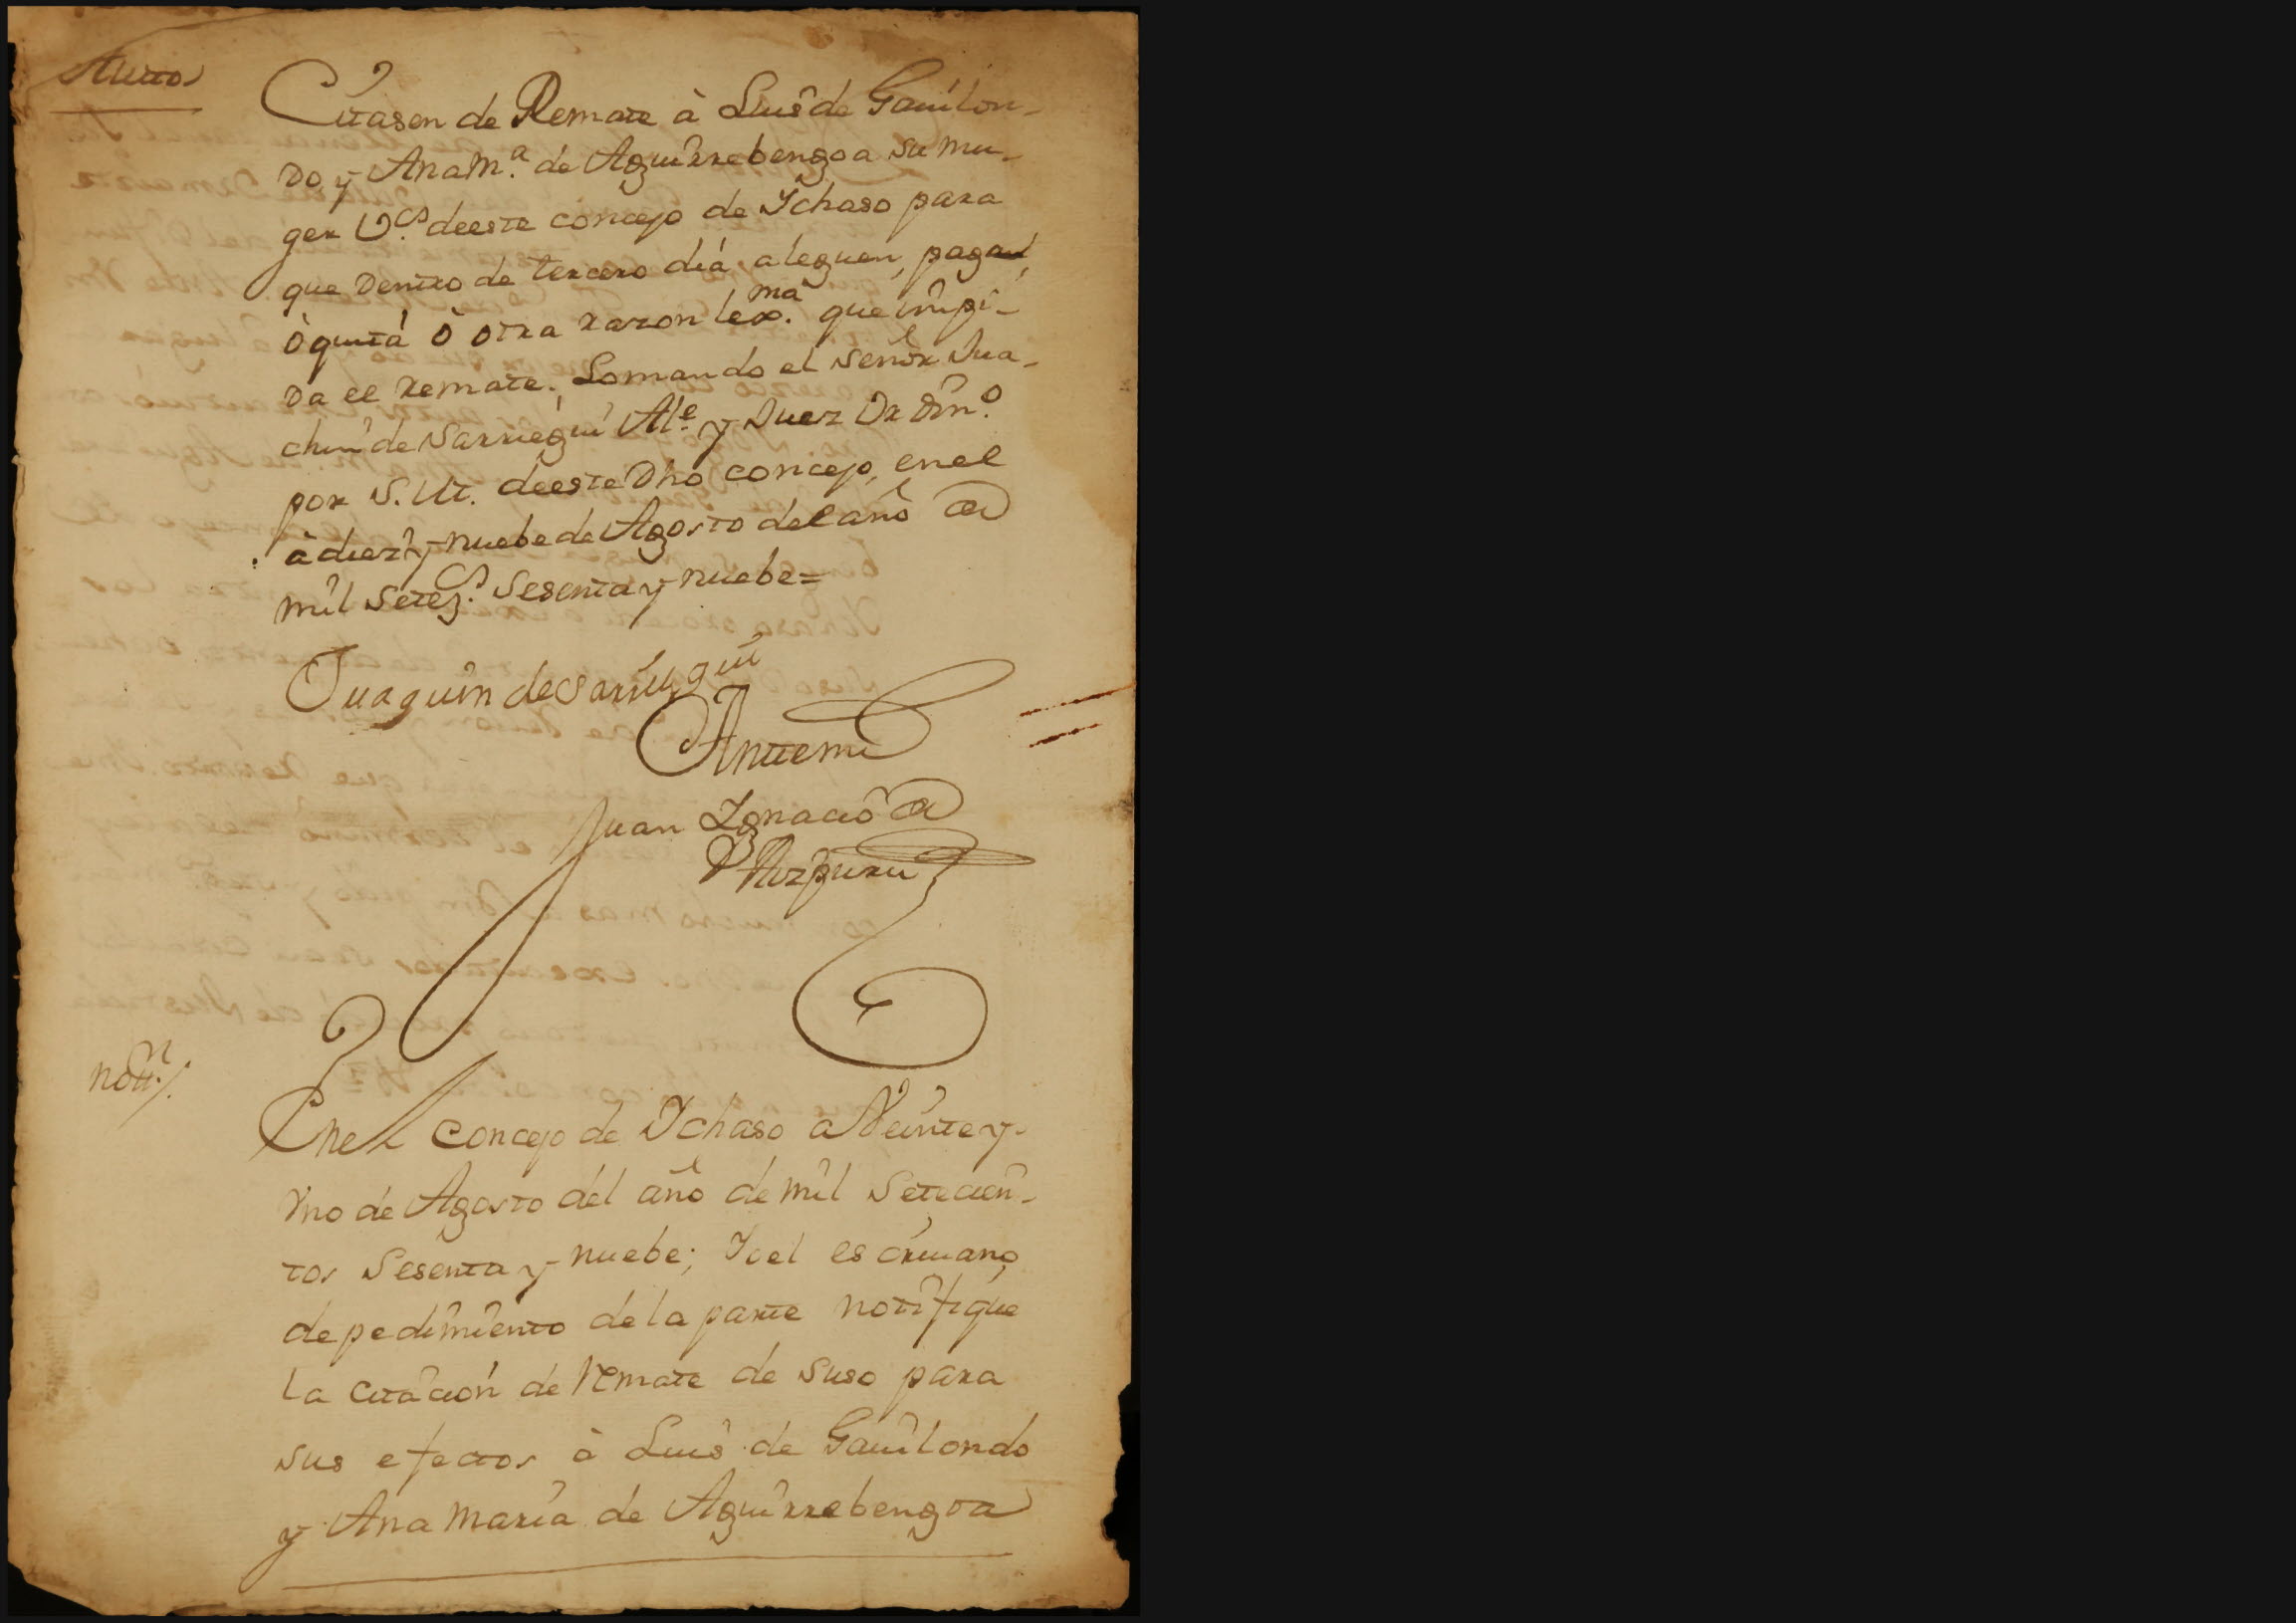 Auto
Citasen de Remate à Luis de Gauilon-
do y Ana M.ª de Aguirrebengoa su mu-
ger V.ºs de este concejo de Ychaso para
que dentro de tercero dia aleguen, paga,
ò quita ò otra razon lexma. que impi-
da el remate. Lo mando el señor Jua-
chin de Sarriegui Al.e y Juez Ordin.º
por S. M. de este dho concejo, en el
à diez y nuebe de Agosto del año de
mil setez.s sesenta y nuebe=
Juaquin de Sarriegui
Ante mi
Juan Ygnacio de
Aizpuru
nott.n/.
En el concejo de Ychaso a Veinte y
Vno de Agosto del año de mil setecien-
tos sesenta y nuebe; Yo el escriuano
de pedimiento de la parte notifique
la citacion de remate de suso para
sus efectos à Luis de Gauilondo
y Ana Maria de Aguirrebengoa